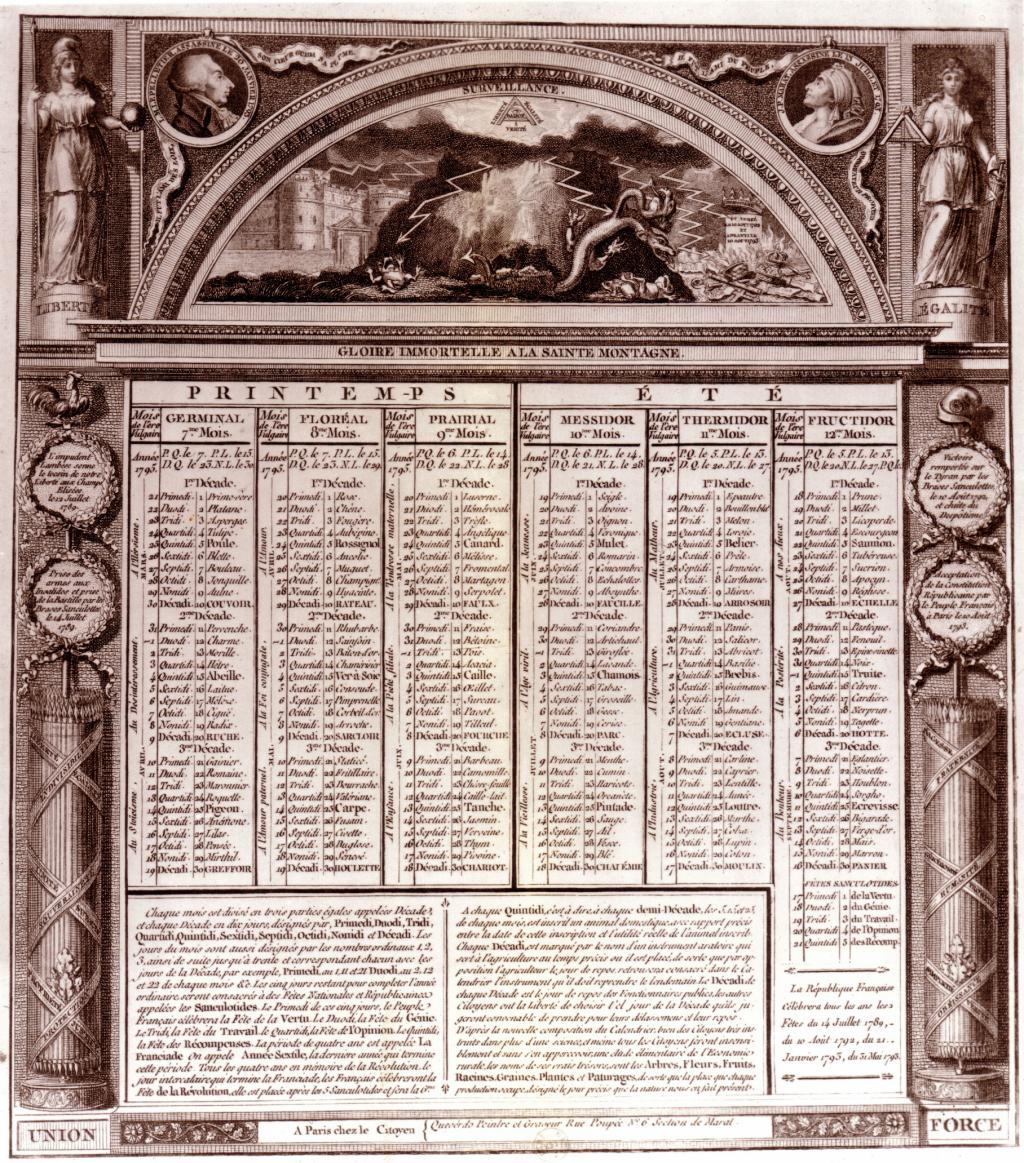 SURVEILLANCE.
VÉRITÉ
LIBERTÉ
ÉGALITÉ
GLOIRE IMMORTELLE A LA SAINTE MONTAGNE.
PRINTEM-PS
ÉTÉ
Mois de l'ère Vulgaire
GERMINAL
7me Mois.
Année 1793.
P.Q. le 7. P.L. le 15.
D.Q. le 23. N.L. le 30
1re Décade.
21 Primedi 1 Primevère
22 Duodi 2 Platane
23 Tridi 3 Asperges
24 Quartidi 4 Tulipe
25 Quintidi 5 Poule
26 Sextidi 6 Blette
27 Septidi 7 Bouleau
28 Octidi 8 Jonquille
29 Nonidi 9 Aulne
30 Décadi 10 COUVOIR
2me Décade.
31 Primedi 11 Pervenche
1 Duodi 12 Charme
2 Tridi 13 Morille
3 Quartidi 14 Hêtre
4 Quintidi 15 Abeille
5 Sextidi 16 Laitue
6 Septidi 17 Mélèse
7 Octidi 18 Ciguë
8 Nonidi 19 Radix
9 Décadi 20 RUCHE
3me Décade.
10 Primedi 21 Gainier
11 Duodi 22 Romaine
12 Tridi 23 Maronnier
13 Quartidi 24 Roquette
14 Quintidi 25 Pigeon
15 Sextidi 26 Anémone
16 Septidi 27 Lilas
17 Octidi 28 Pensée
18 Nonidi 29 Mirthil
19 Décadi 30 GREFFOIR
Mois de l'ère Vulgaire
FLORÉAL
8me Mois.
Année 1793.
P.Q. le 7. P.L. le 15.
D.Q. le 23. N.L. le 29.
1re Décade.
20 Primedi 1 Rose
21 Duodi 2 Chêne
22 Tridi 3 Fougère
23 Quartidi 4 Aubépine
24 Quintidi 5 Rossignol
25 Sextidi 6 Ancolie
26 Septidi 7 Muguet
27 Octidi 8 Champign.
28 Nonidi 9 Hyacinte
29 Décadi 10 RATEAU
2me Décade.
30 Primedi 11 Rhubarbe
1 Duodi 12 Sainfoin
2 Tridi 13 Bâton-d'or
3 Quartidi 14 Chamérisier
4 Quintidi 15 Ver-à-Soie
5 Sextidi 16 Consoude
6 Septidi 17 Pimprenelle
7 Octidi 18 Corbeil-d'or
8 Nonidi 19 Arroche
9 Décadi 20 SARCLOIR
3me Décade.
10 Primedi 21 Staticé
11 Duodi 22 Fritillaire
12 Tridi 23 Bourrache
13 Quartidi 24 Valériane
14 Quintidi 25 Carpe
15 Sextidi 26 Fusain
16 Septidi 27 Civette
17 Octidi 28 Buglose
18 Nonidi 29 Sénevé
19 Décadi 30 HOULETTE
Mois de l'ère Vulgaire
PRAIRIAL
9me Mois.
Année 1793.
P.Q. le 6. P.L. le 14.
D.Q. le 22. N.L. le 28
1re Décade.
20 Primedi 1 Luserne
21 Duodi 2 Hémérocale
22 Tridi 3 Trèfle
23 Quartidi 4 Angélique
24 Quintidi 5 Canard
25 Sextidi 6 Mélisse
26 Septidi 7 Fromental
27 Octidi 8 Martagon
28 Nonidi 9 Serpolet
29 Décadi 10 FAULX
2me Décade.
30 Primedi 11 Fraise
31 Duodi 12 Bétoine
1 Tridi 13 Pois
2 Quartidi 14 Acacia
3 Quintidi 15 Caille
4 Sextidi 16 Œillet
5 Septidi 17 Sureau
6 Octidi 18 Pavot
7 Nonidi 19 Tilleul
8 Décadi 20 FOURCHE
3me Décade.
9 Primedi 21 Barbeau
10 Duodi 22 Camomille
11 Tridi 23 Chèvrefeuille
12 Quartidi 24 Caille-lait
13 Quintidi 25 Tanche
14 Sextidi 26 Jasmin
15 Septidi 27 Verveine
16 Octidi 28 Thym
17 Nonidi 29 Pivoine
18 Décadi 30 CHARIOT
Mois de l'ère Vulgaire
MESSIDOR
10me Mois.
Année 1793.
P.Q. le 6. P.L. le 14.
D.Q. le 21. N.L. le 28
1re Décade.
19 Primedi 1 Seigle
20 Duodi 2 Avoine
21 Tridi 3 Oignon
22 Quartidi 4 Véronique
23 Quintidi 5 Mulet
24 Sextidi 6 Romarin
25 Septidi 7 Concombre
26 Octidi 8 Echalottes
27 Nonidi 9 Absynthe
28 Décadi 10 FAUCILLE
2me Décade.
29 Primedi 11 Coriandre
30 Duodi 12 Artichaut
1 Tridi 13 Giroflée
2 Quartidi 14 Lavande
3 Quintidi 15 Chamois
4 Sextidi 16 Tabac
5 Septidi 17 Groseille
6 Octidi 18 Gesse
7 Nonidi 19 Cerise
8 Décadi 20 PARC
3me Décade.
9 Primedi 21 Menthe
10 Duodi 22 Cumin
11 Tridi 23 Haricots
12 Quartidi 24 Orcanète
13 Quintidi 25 Pintade
14 Sextidi 26 Sauge
15 Septidi 27 Ail
16 Octidi 28 Vesce
17 Nonidi 29 Blé
18 Décadi 30 CHALÉMIE
Mois de l'ère Vulgaire
THERMIDOR
11me Mois.
Année 1793.
P.Q. le 5. P.L. le 13.
D.Q. le 20. N.L. le 27
1re Décade.
19 Primedi 1 Epautre
20 Duodi 2 Bouillon blc
21 Tridi 3 Melon
22 Quartidi 4 Ivroie
23 Quintidi 5 Belier
24 Sextidi 6 Prêle
25 Septidi 7 Armoise
26 Octidi 8 Carthame
27 Nonidi 9 Mûres
28 Décadi 10 ARROSOIR
2me Décade.
29 Primedi 11 Panis
30 Duodi 12 Salicor
31 Tridi 13 Abricot
1 Quartidi 14 Basilic
2 Quintidi 15 Brebis
3 Sextidi 16 Guimauve
4 Septidi 17 Lin
5 Octidi 18 Amande
6 Nonidi 19 Gentiane
7 Décadi 20 ECLUSE
3me Décade.
8 Primedi 21 Carline
9 Duodi 22 Caprier
10 Tridi 23 Lentille
11 Quartidi 24 Aunée
12 Quintidi 25 Loutre
13 Sextidi 26 Myrthe
14 Septidi 27 Colsa
15 Octidi 28 Lupin
16 Nonidi 29 Coton
17 Décadi 30 MOULIN
Mois de l'ère Vulgaire
FRUCTIDOR
12me Mois.
Année 1793.
P.Q. le 5. P.L. le 13.
1re Décade.
18 Primedi 1 Prune
19 Duodi 2 Millet
20 Tridi 3 Licoperde
21 Quartidi 4 Escourgeon
22 Quintidi 5 Saumon
23 Sextidi 6 Tubéreuse
24 Septidi 7 Sucrion
25 Octidi 8 Apocyn
26 Nonidi 9 Réglisse
27 Décadi 10 ECHELLE
2me Décade.
28 Primedi 11 Pastèque
29 Duodi 12 Fenouil
30 Tridi 13 Epinevinette
31 Quartidi 14 Noix
1 Quintidi 15 Truite
2 Sextidi 16 Citron
3 Septidi 17 Cardière
4 Octidi 18 Nerprun
5 Nonidi 19 Tagette
6 Décadi 20 HOTTE
3me Décade.
7 Primedi 21 Eglantier
8 Duodi 22 Noisette
9 Tridi 23 Houblon
10 Quartidi 24 Sorgho
11 Quintidi 25 Ecrevisse
12 Sextidi 26 Bigarade
13 Septidi 27 Verge-d'or
14 Octidi 28 Maïs
15 Nonidi 29 Marron
16 Décadi 30 PANIER
FÊTES SANCULOTIDES
17 Primedi 1 de la Vertu
18 Duodi 2 du Génie
19 Tridi 3 du Travail
20 Quartidi 4 de l'Opinion
21 Quintidi 5 des Récomp.
La République Française
Célébrera tous les ans les
Fêtes du 14 Juillet 1789,-
du 10 Août 1792, du 21..
Janvier 1793, du 31 Mai 1793.
L'impudent
Lambesc seme
le levain de notre
Liberté aux Champs
Elisées
le 12 Juillet
1789
Prise des
armes aux
Invalides et prise
de la Bastille par les
Braves Sanculottes
le 14 Juillet
1789
Victoire
remportée sur
le Tyran par les
Braves Sanculottes
le 10 Août 1792.
et chûte du
Despotisme.
Acceptation
de la Constitution
Républicaine par
le Peuple Français
à Paris le 10 Août
1793.
Chaque mois est divisé en trois parties égales appelées Décades,
et chaque Décade en dix jours, désignés par, Primedi, Duodi, Tridi,
Quartidi, Quintidi, Sextidi, Septidi, Octidi, Nonidi et Décadi. Les
jours du mois sont aussi désignés par les nombres ordinaux 1, 2,
3, ainsi de suite jusqu'à trente et correspondant chacun avec les
jours de la Décade, par exemple, Primedi, au 1, 11 et 21 Duodi, au 2, 12
et 22 de chaque mois &c. Les cinq jours restant pour completter l'année
ordinaire, seront consacrés à des Fêtes Nationales et Républicaines
appelées les Sanculotides. Le Primedi de ces cinq jours, le Peuple
Français célébrera la Fête de la Vertu. Le Duodi, la Fête du Génie.
Le Tridi, la Fête du Travail. le Quartidi, la Fête de l'Opinion. Le Quintidi,
la Fête des Récompenses. La période de quatre ans est appelée La
Franciade. On appele Année Sextile, la derniere année qui termine
cette période. Tous les quatre ans en mémoire de la Révolution, le
jour intercalaire qui termine la Franciade, les Français célébreront la
Fête de la Révolution, elle est placée après les 5 Sanculotides et sera la 6me
A chaque Quintidi, c'est à dire, à chaque demi-Décade, les 5, 15 et 25
de chaque mois, est inscrit un animal domestique, avec rapport précis
entre la date de cette inscription et l'utilité réelle de l'animal inscrit.
Chaque Décadi, est marqué par le nom d'un instrument aratoire qui
sert à l'agriculteur au temps précis ou il est placé, de sorte que par op-
position l'agriculteur le jour de repos, retrouvera consacré dans le Ca-
lendrier l'instrument qu'il doit reprendre le lendemain. Le Décadi de
chaque Décade est le jour de repos des Fonctionnaires publics, les autres
Citoyens ont la liberté de choisir tel jour de la Décade qu'ils ju-
geront convenable de prendre pour leurs délassemens et leur repos.
D'après la nouvelle composition du Calendrier, bien des Citoyens très ins-
truits dans plus d'une science, et même tous les Citoyens feront insensi-
blement et sans s'en appercevoir, une étude élémentaire de l'Economie
rurale, les noms de ses vrais trésors, sont les Arbres, Fleurs, Fruits,
Racines, Graines, Plantes et Paturages, de sorte que la place que chaque
production occupe, désigne le jour précis que la nature nous en fait présent.
UNION
A Paris chez le Citoyen { Quéverdo Peintre et Graveur Rue Poupée No. 6 Section de Marat.
FORCE